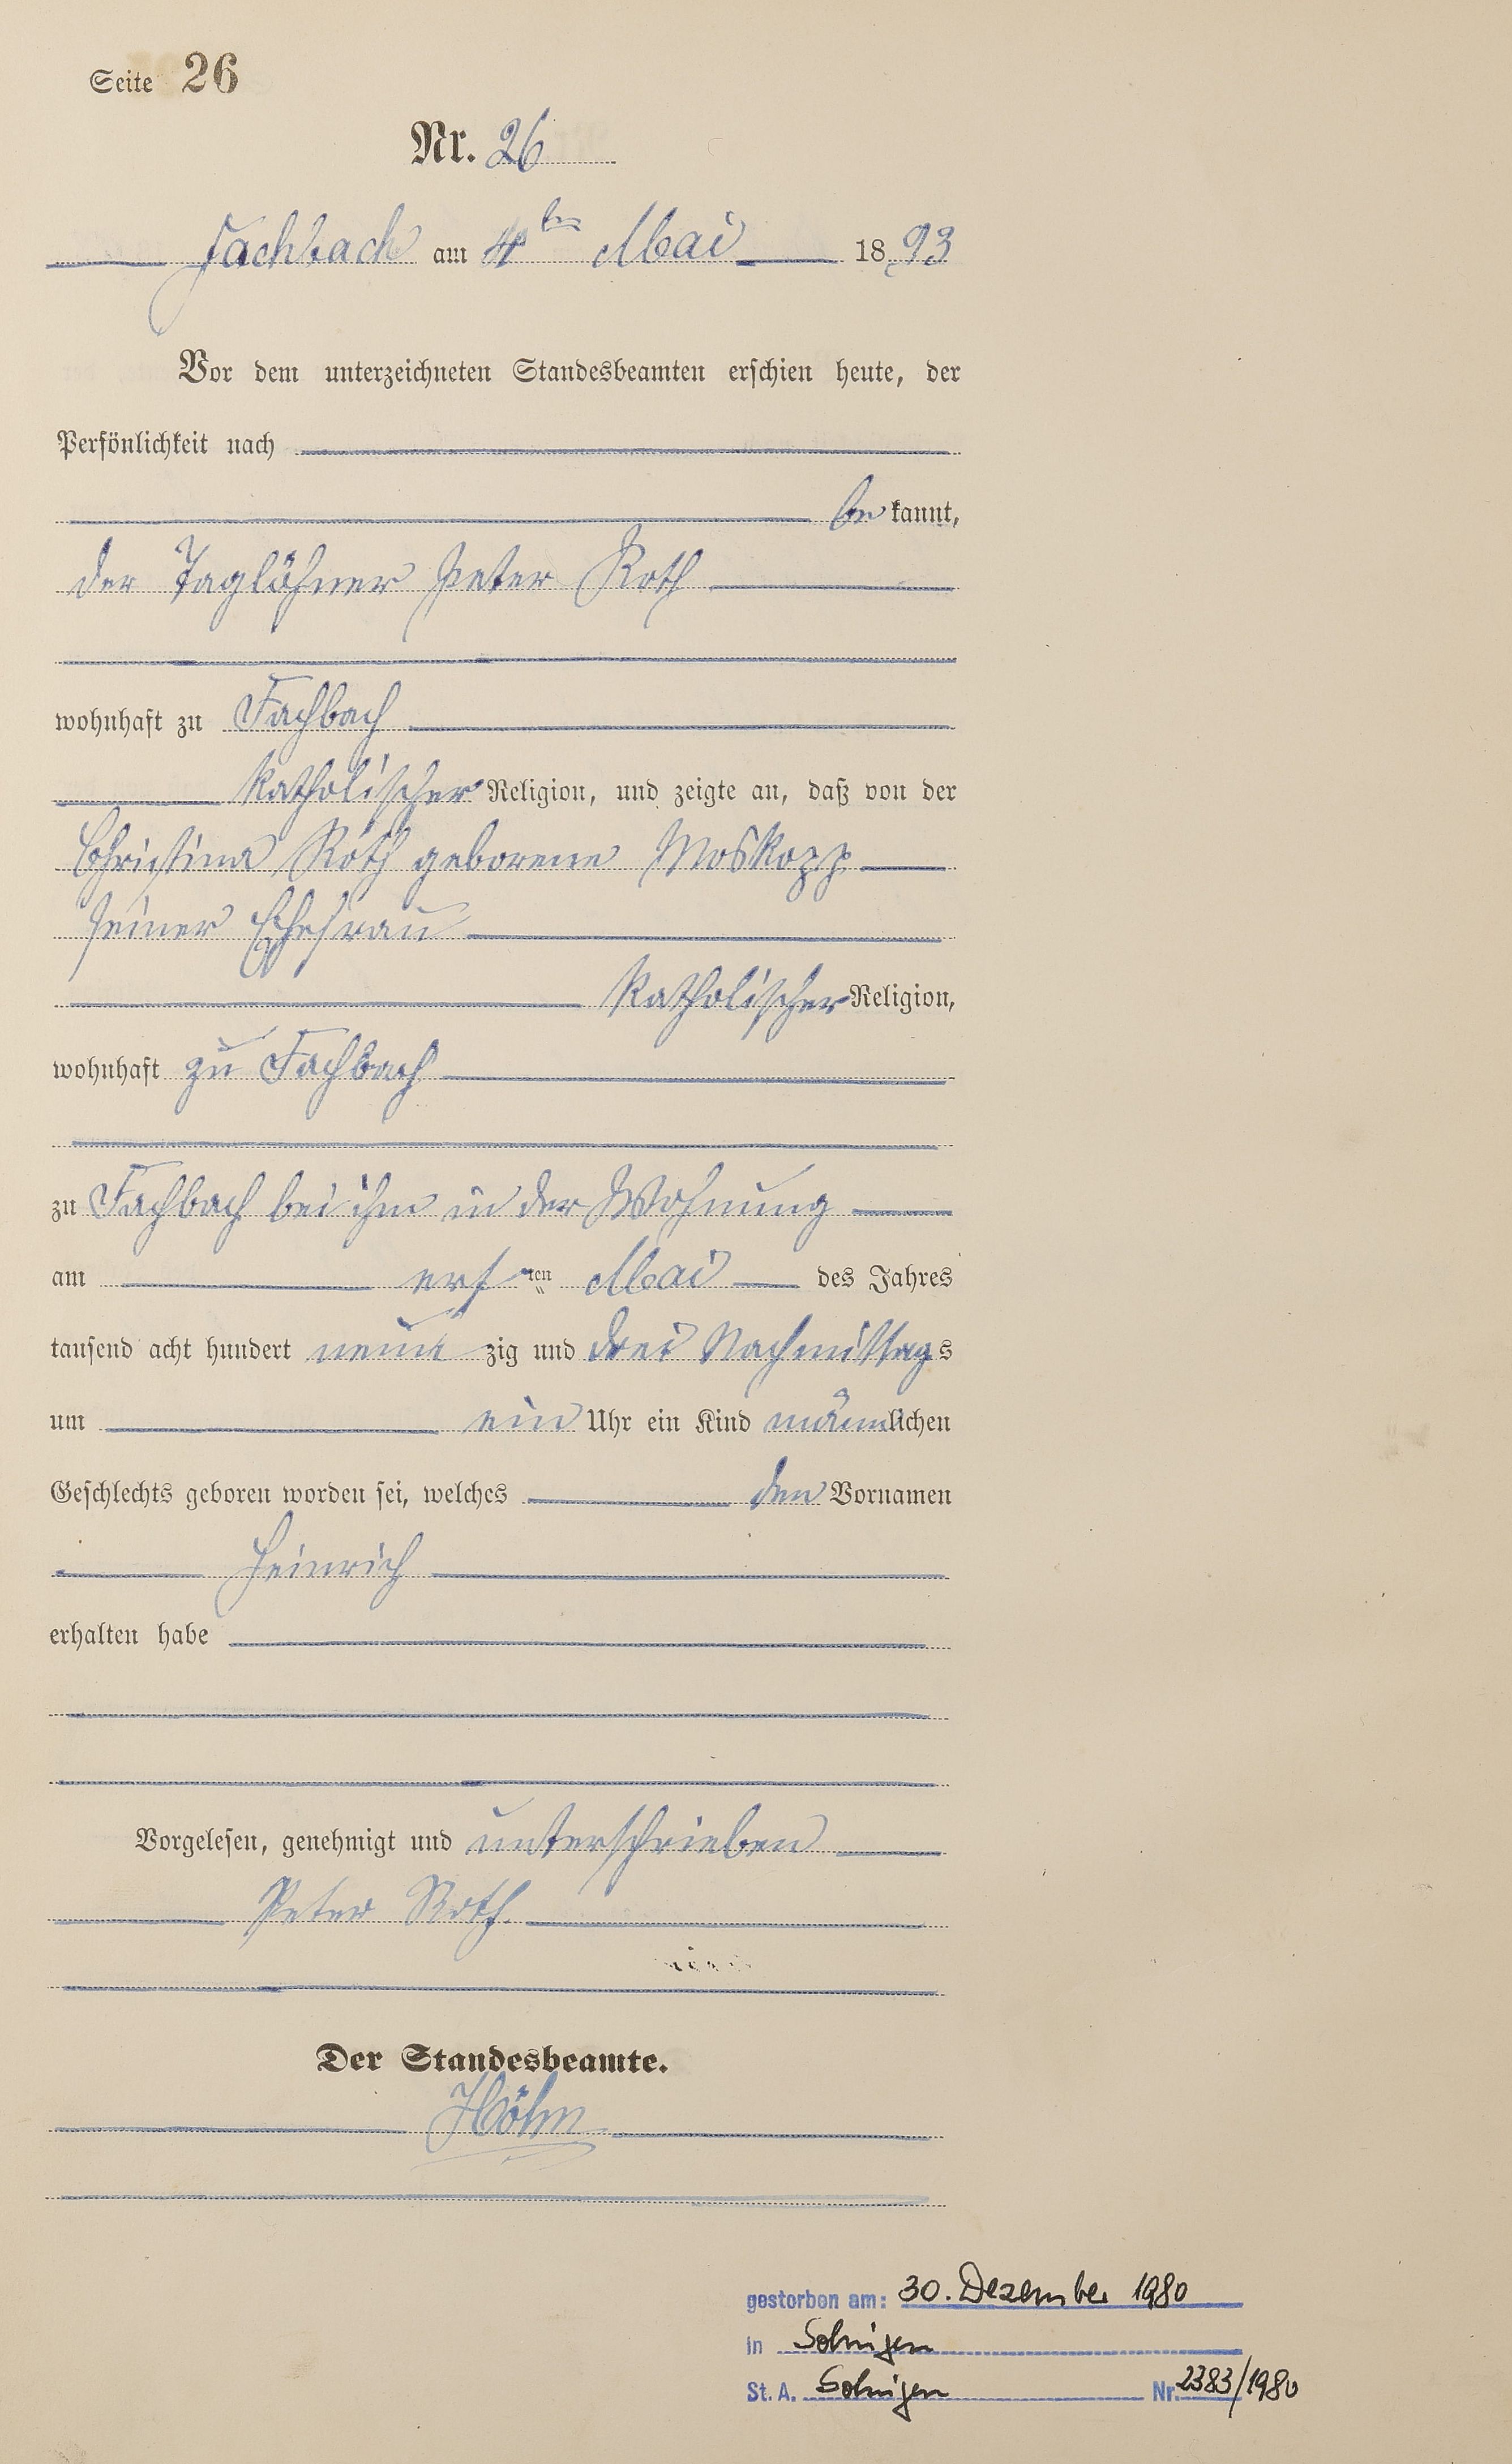 Seite 26
Nr. 26
Fachbach am 4ten Mai 1893
Vor dem unterzeichneten Standesbeamten erschien heute, der
Persönlichkeit nach
be kannt,
der Taglöhner Peter Roth
wohnhaft zu Fachbach
katholischer Religion, und zeigte an, daß von der
Christina Roth geborene Moskopp
seiner Ehefrau
katholischer Religion,
wohnhaft zu Fachbach
zu Fachbach bei ihm in der Wohnung
am ersten Mai des Jahres
tausend acht hundert neun zig und drei Nachmittags
um ein Uhr ein Kind männlichen
Geschlechts geboren worden sei, welches den Vornamen
Heinrich
erhalten habe
Vorgelesen, genehmigt und unterschrieben
Peter Roth.
Der Standesbeamte.
Höhn
gestorben am: 30. Dezember 1980
in Solingen
St. A. Solingen Nr. 2383/1980